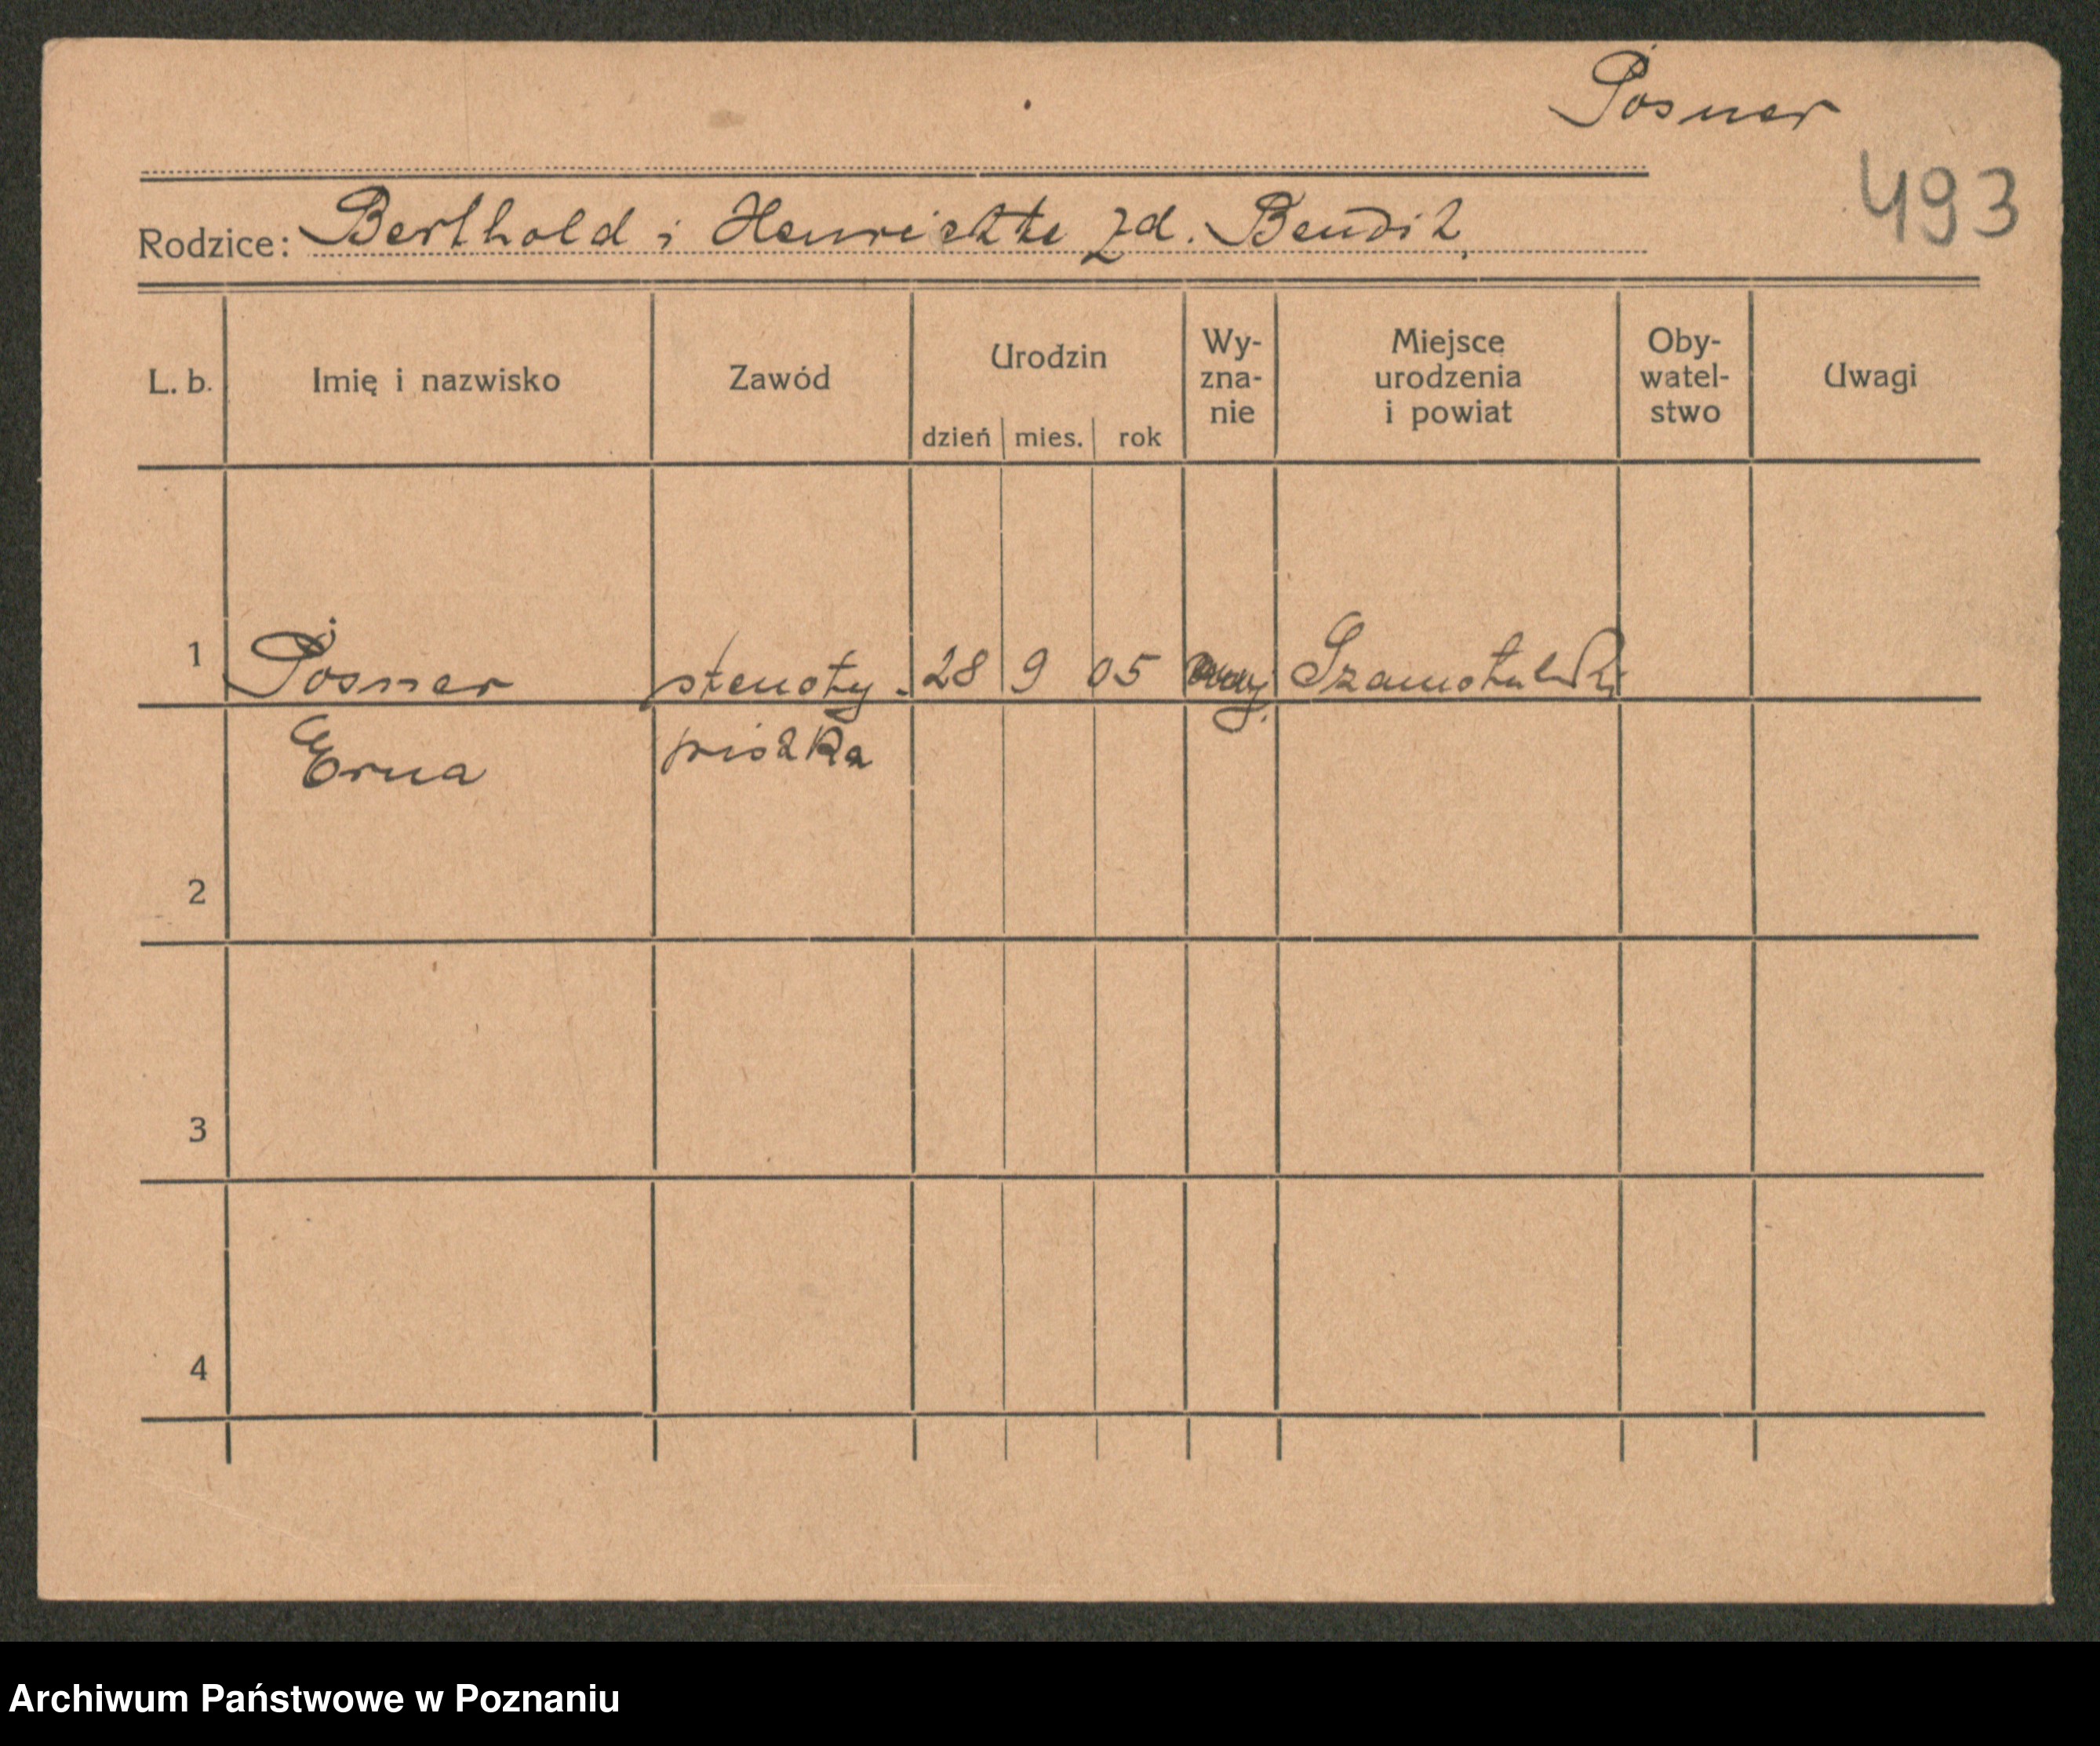 Posner
493
Rodzice: Berthold i Henriette zd. Bendit,
L. b. Imię i nazwisko Zawód Urodzin dzień mies. rok Wy-zna-nie Miejsce urodzenia i powiat Oby-watel-stwo Uwagi
1 Posner stenoty- 28 9 05 Szamotulski
Erna pistka
2
3
4
Archiwum Państwowe w Poznaniu